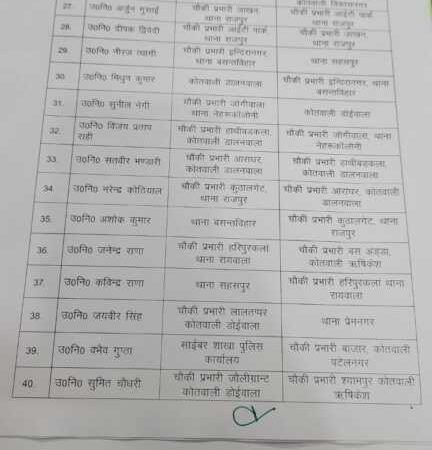 कोतवाली विकासनगर
27. उ0नि0 अर्जुन गुसाई चौकी प्रभारी जाखन थाना राजपुर चौकी प्रभारी आईटी पार्क थाना राजपुर
28. उ0नि0 दीपक द्विवेदी चौकी प्रभारी आईटी पार्क थाना राजपुर चौकी प्रभारी जाखन, थाना राजपुर
29. उ0नि0 नीरज त्यागी चौकी प्रभारी इन्दिरानगर, थाना बसन्तविहार थाना सहसपुर
30. उ0नि0 मिथुन कुमार कोतवाली डालनवाला चौकी प्रभारी इन्दिरानगर, थाना बसन्तविहार
31. उ0नि0 सुनील नेगी चौकी प्रभारी जोगीवाला थाना नेहरूकॉलोनी कोतवाली डोईवाला
32. उ0नि0 विजय प्रताप राही चौकी प्रभारी हाथीबडकला, कोतवाली डालनवाला चौकी प्रभारी जोगीवाला, थाना नेहरूकॉलोनी
33. उ0नि0 सतवीर भण्डारी चौकी प्रभारी आराघर, कोतवाली डालनवाला चौकी प्रभारी हाथीबडकला, कोतवाली डालनवाला
34 उ0नि0 नरेन्द्र कोठियाल चौकी प्रभारी कुठालगेट, थाना राजपुर चौकी प्रभारी आराघर, कोतवाली डालनवाला
35. उ0नि0 अशोक कुमार थाना बसन्तविहार चौकी प्रभारी कुठालगेट, थाना राजपुर
36. उ0नि0 जनेन्द्र राणा चौकी प्रभारी हरिपुरकला थाना रायवाला चौकी प्रभारी बस अड्डा, कोतवाली ऋषिकेश
37. उ0नि0 कविन्द्र राणा थाना सहसपुर चौकी प्रभारी हरिपुरकला थाना रायवाला
38. उ0नि0 जयवीर सिंह चौकी प्रभारी लालतप्पर कोतवाली डोईवाला थाना प्रेमनगर
39. उ0नि0 वभैव गुप्ता साईबर शाखा पुलिस कार्यालय चौकी प्रभारी बाजार, कोतवाली पटेलनगर
40. उ0नि0 सुमित चौधरी चौकी प्रभारी जौलीग्रान्ट कोतवाली डोईवाला चौकी प्रभारी श्यामपुर कोतवाली ऋषिकेश